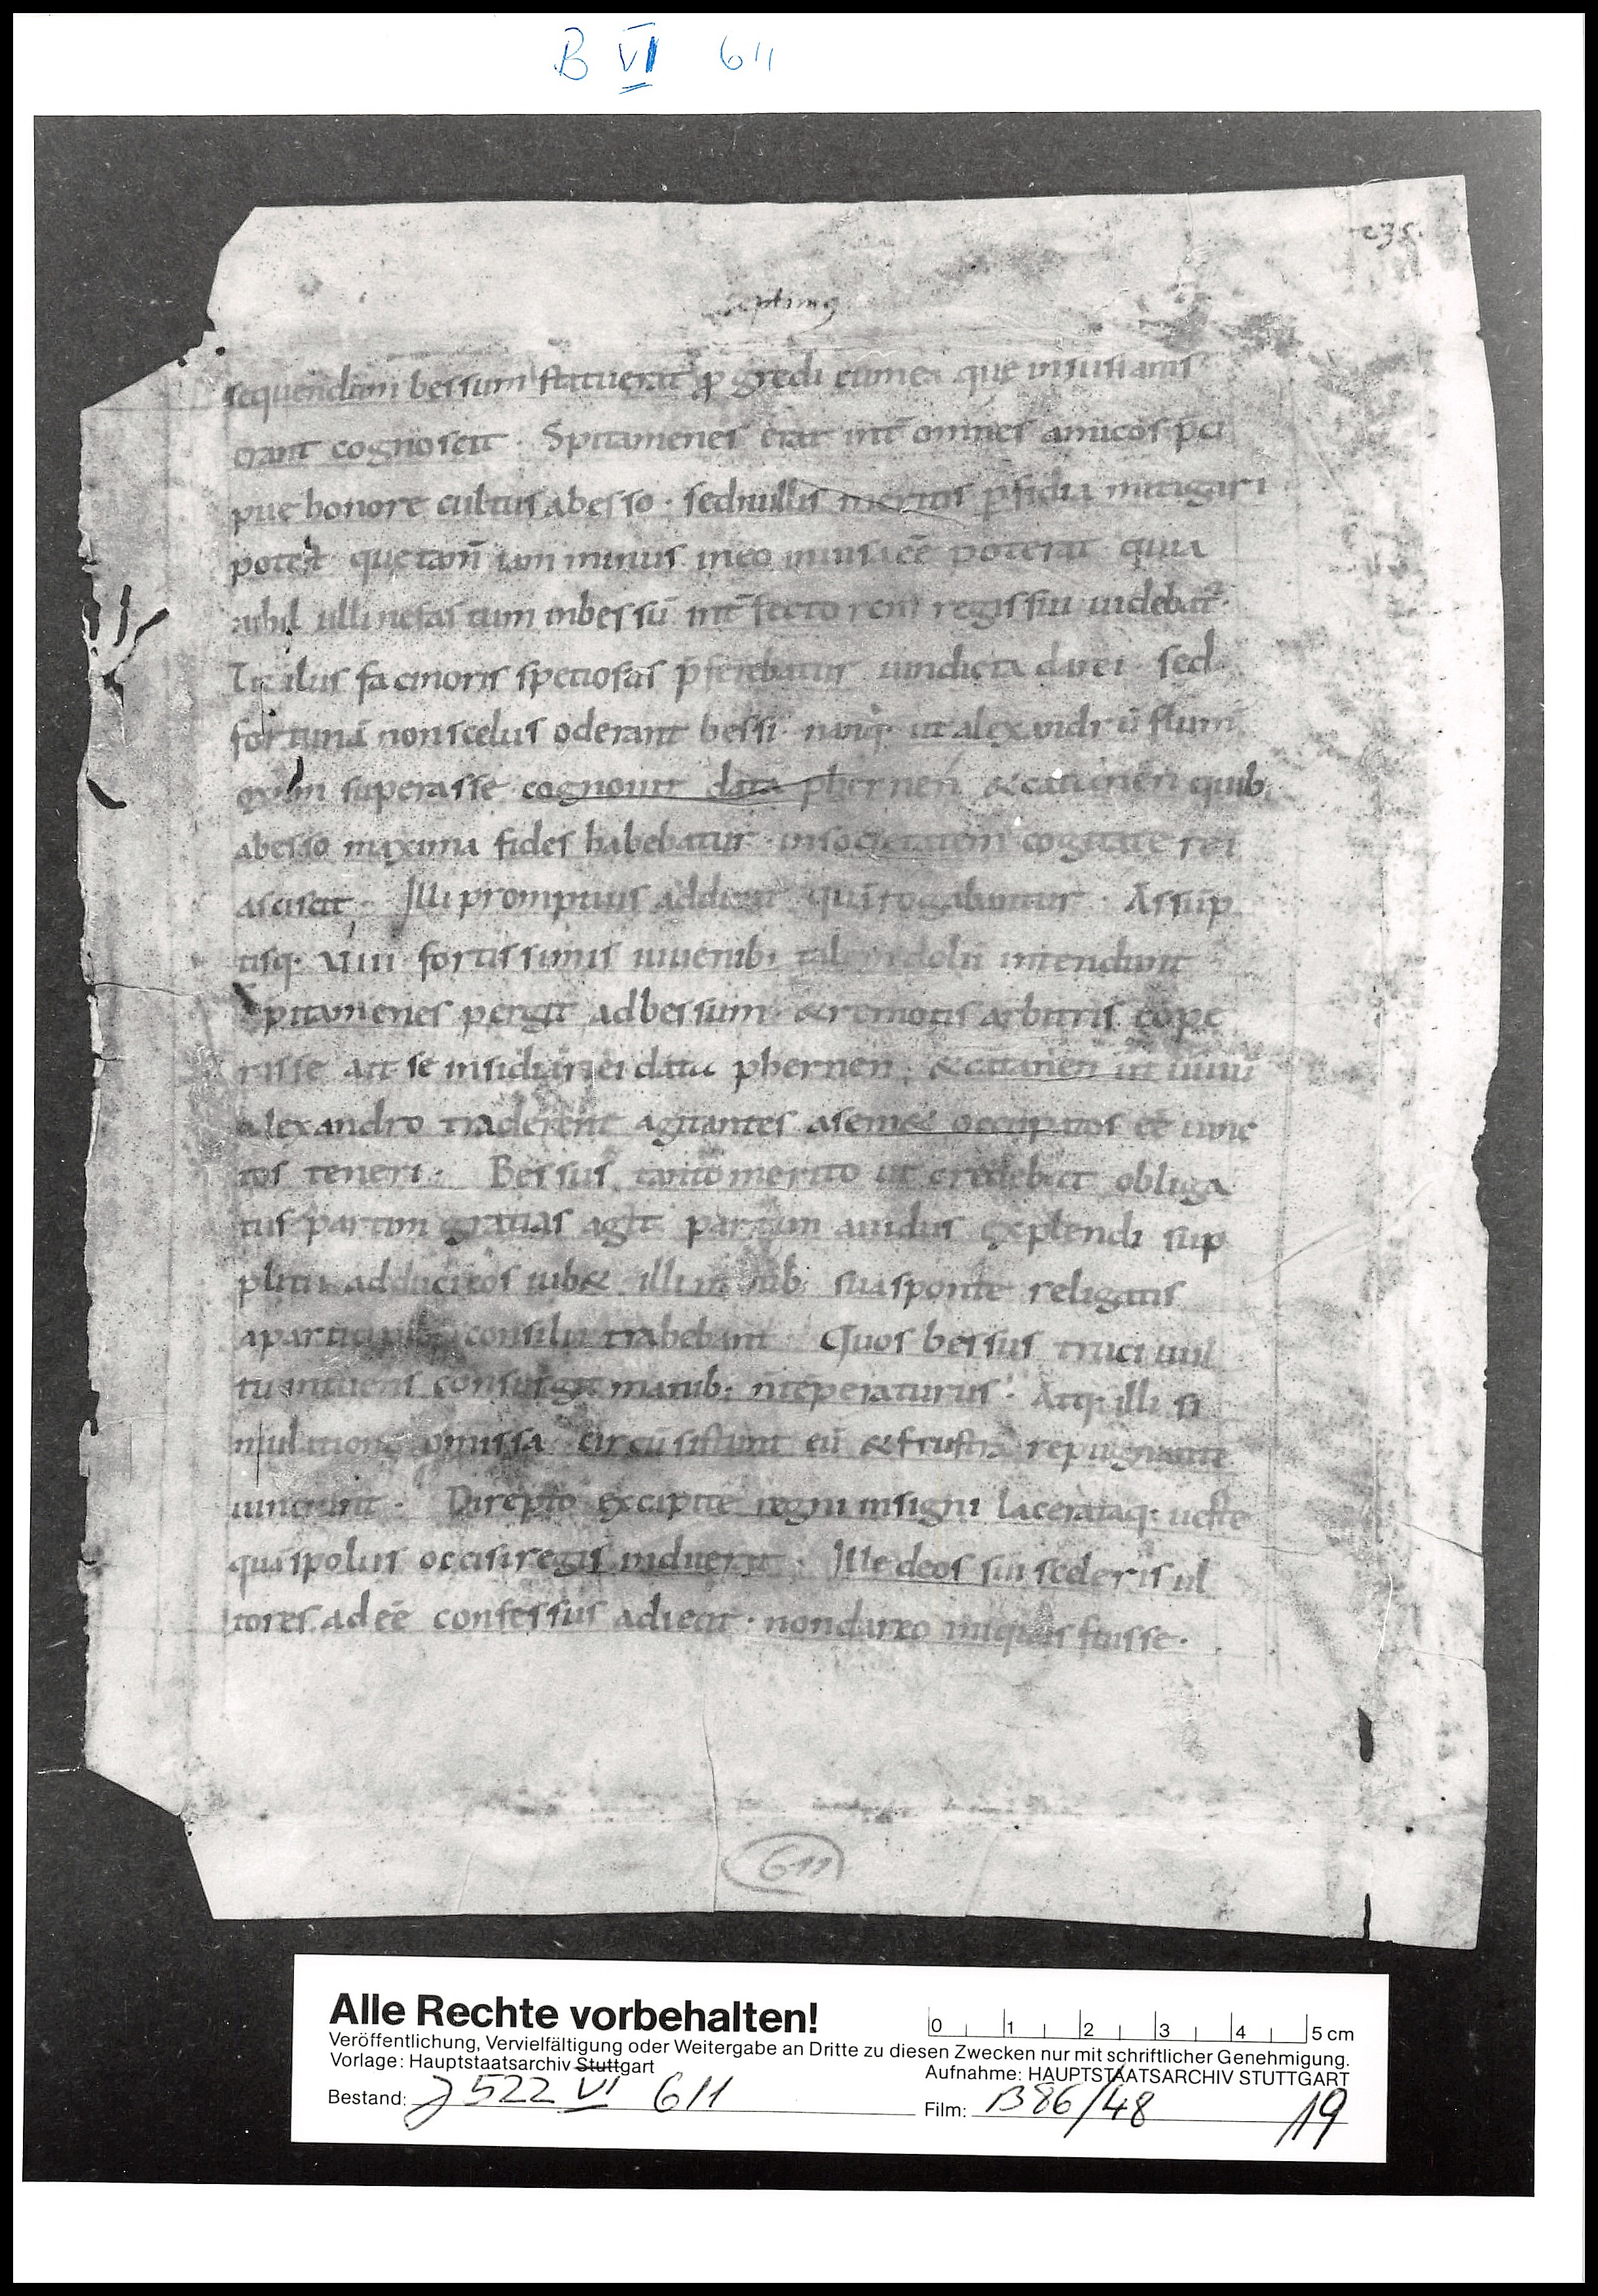 B VI 611
235.
septimus
sequendum bessum statuerat ꝓgredi cum ea que insusianis
erant cognoscit · Spitamenes erat int̄ omnes amicos p̄ci
pue honore cultus abesso · sednullis meritis ꝑfidia mitigari
potest que tam̄ iam minus ineo inuisa eē poterat quia
nihil ulli nefas tum inbessū int̄fectorem regis sui uidebat᷑
Titulus facinoris speciosus p̄ferebatur uindicta darei sed
fortunā nonscelus oderant bessi · nanq· ut alexandrū flum̄
oxum superasse cognouit data phernen &catanen quib;
abesso maxima fides habebatur · insocietatem cogitate rei
asciscit · Illi promptius addeunt quā rogabantur · Assūp
tisq· VIII fortissimis iuuenib; talem dolū intendunt
Spitamenes pergit adbessum · &remotis arbitris cōpe
risse ait se insidiari ei data phernen · &catanen ut uiuū
alexandro traderent agitantes asemet occupatos eē uinc
tos teneri · Bessus tanto merito ut credebat obliga
tus partim gratias agit partim auidus explendi sup
plicii adduci eos iub& illi manib; suasponte religatis
aparticipib; consilii trahebant · Quos bessus truci uul
tu intuens consurgit manib; nтēperaturus · Atq· illi si
mulatione omissa circūsistunt eū &frustra repugnante
uinciunt · Direpto excapite regni insigni lacerataq· ueste
quāspoliis occisiregis induerat · Ille deos sui sceleris ul
tores adeē confessus adiecit · nondareo iniquos fuisse ·
611
Alle Rechte vorbehalten!
Veröffentlichung, Vervielfältigung oder Weitergabe an Dritte zu diesen Zwecken nur mit schriftlicher Genehmigung.
Vorlage: Hauptstaatsarchiv Stuttgart
Bestand: J 522 VI 611
0 1 2 3 4 5 cm
Aufnahme: HAUPTSTAATSARCHIV STUTTGART
Film: B86/48 19